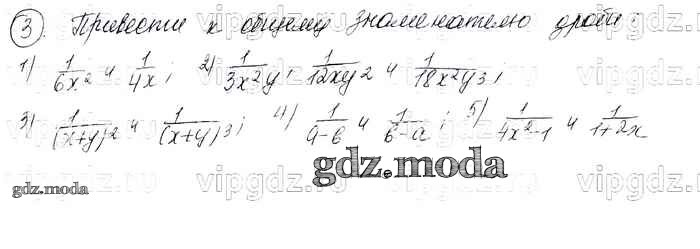 ③ Привести к общему знаменателю дроби:
1) 1/6x² и 1/4x; 2) 1/3x²y, 1/12xy² и 1/18x²y³;
3) 1/(x+y)² и 1/(x+y)³; 4) 1/a-b и 1/b-a; 5) 1/4x²-1 и 1/1+2x
gdz.moda
gdz.moda